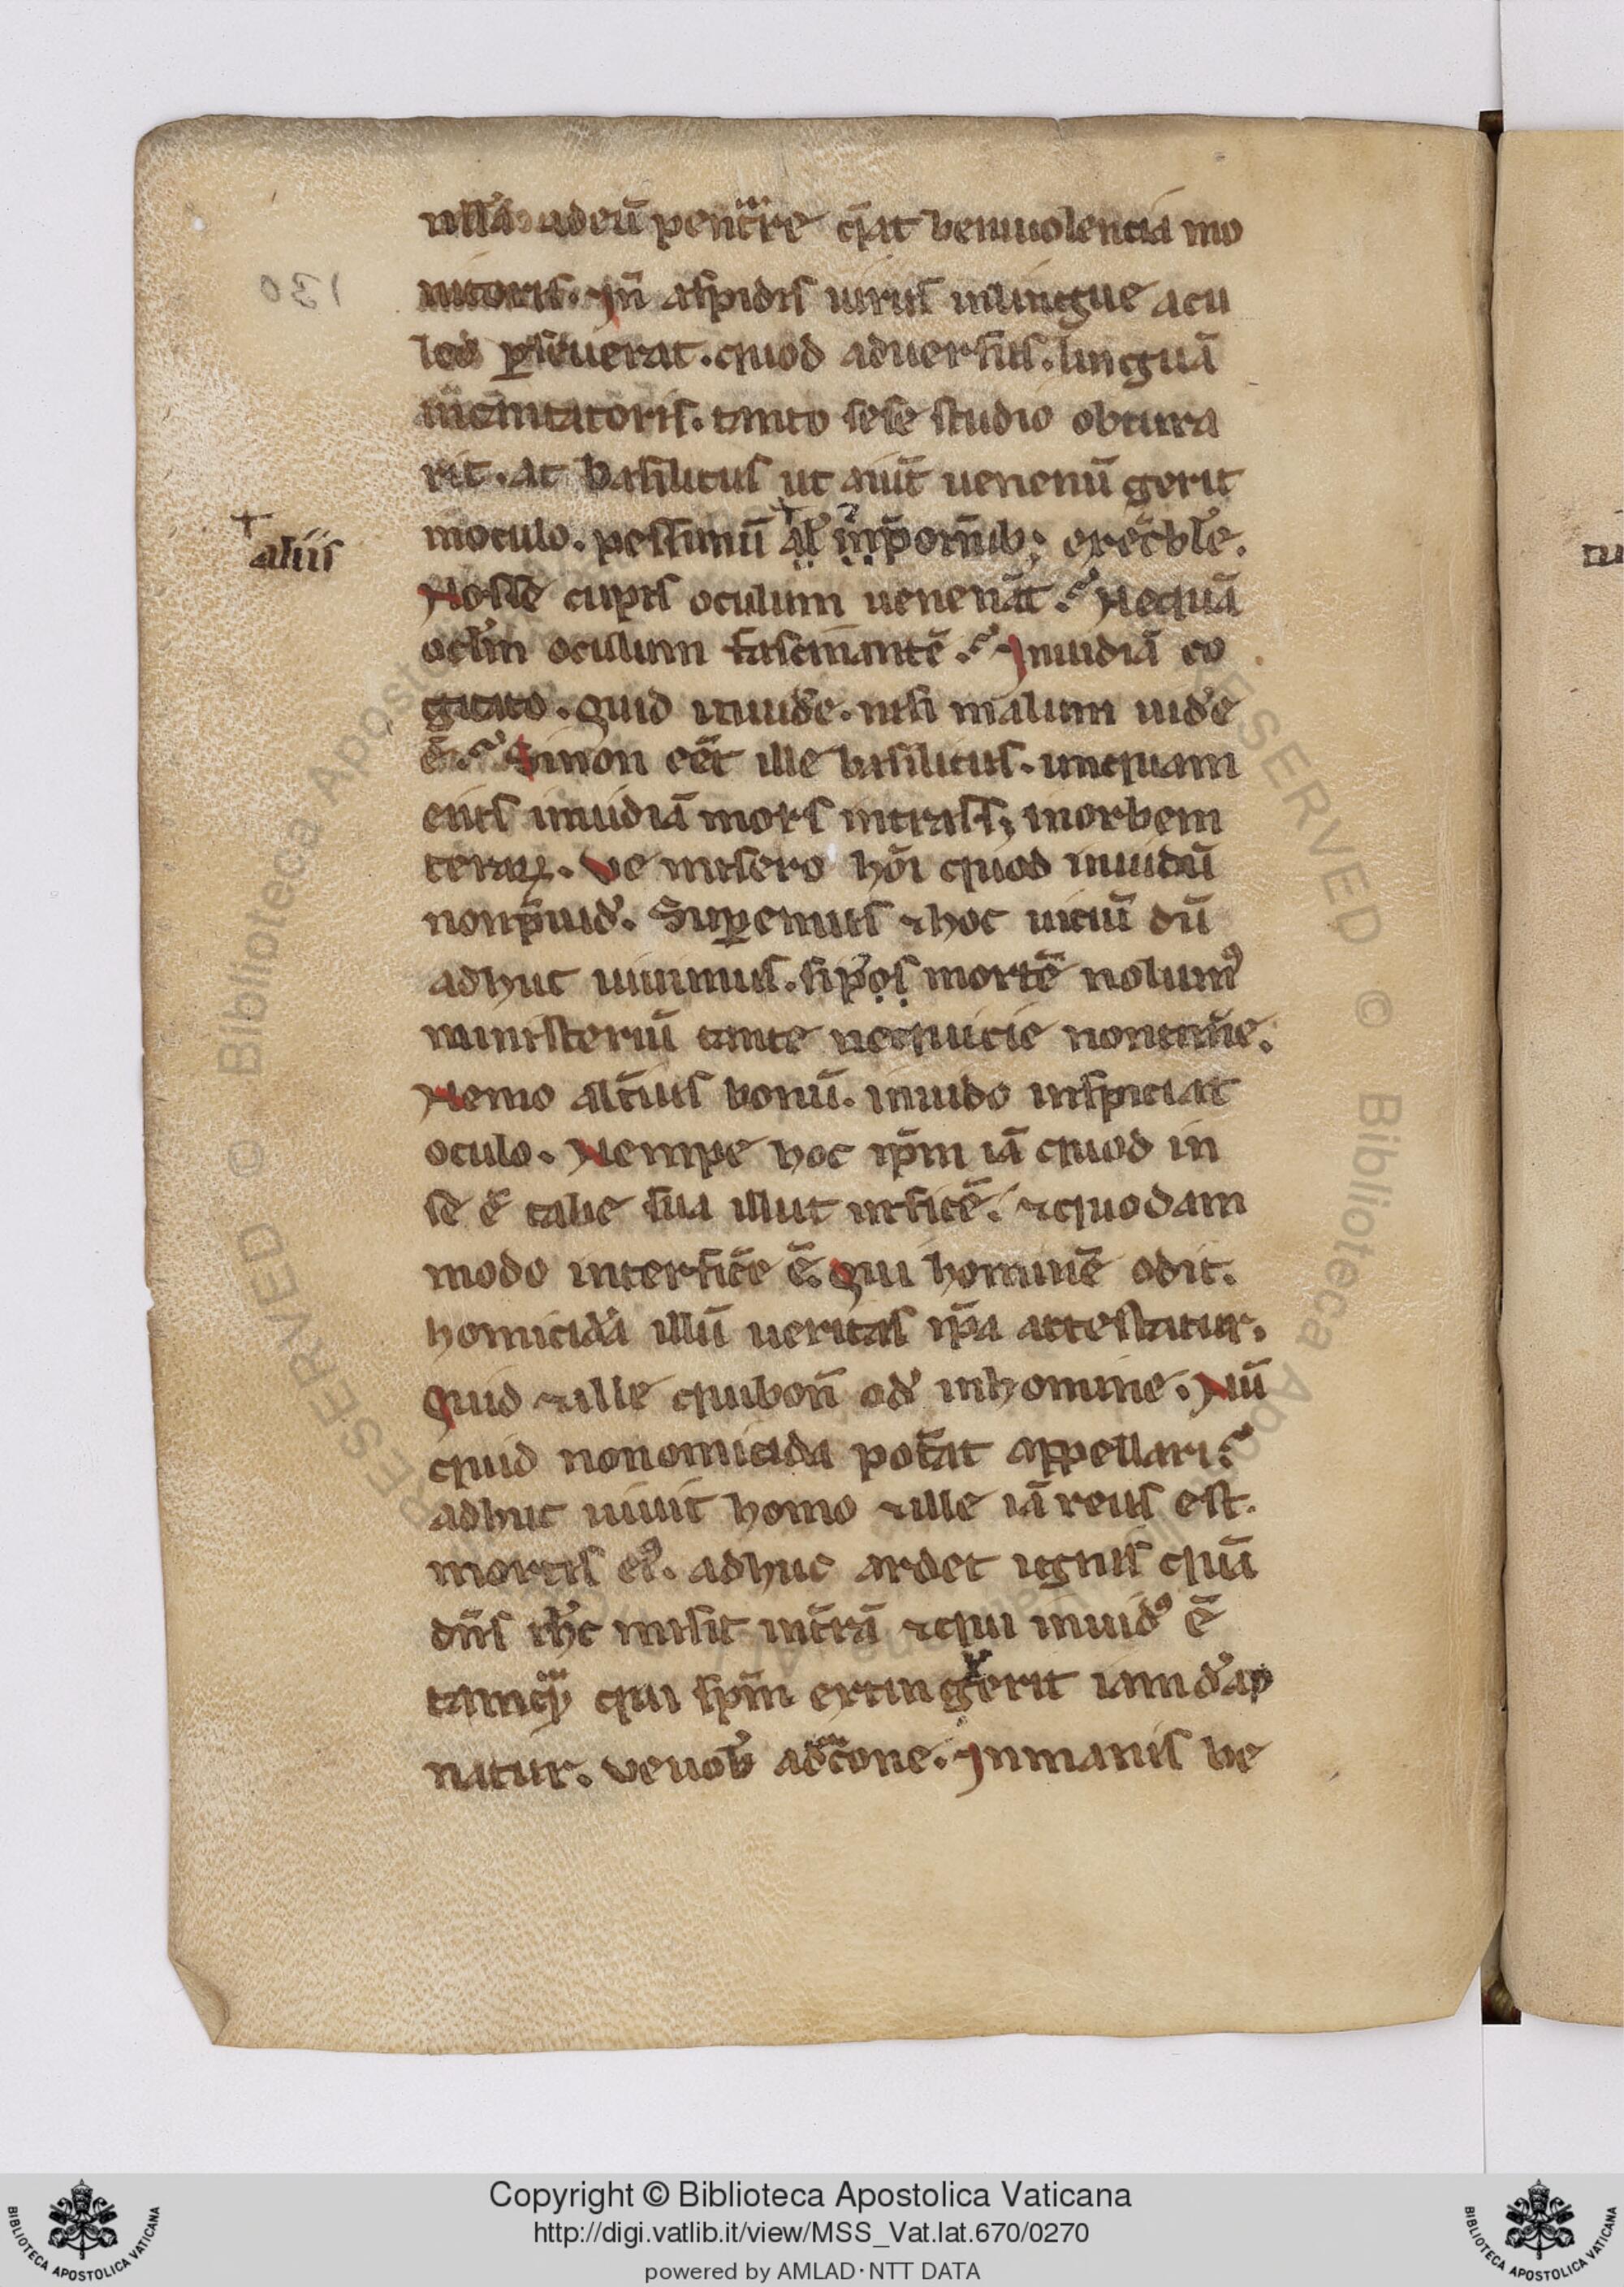 nllā adeū penetrare q̄at beniuolencia mo
nitoris. Jn̄ aspidis uirus inlingue acu
leo ꝑseuerat. quod aduersus. linguā
incantatoris. tanto sese studio obtura
rit. at basilicus ut aiūt uenenū gerit
inoculo. pessimū al̓ in p̄ om̄ib; execr̄ble.
Nosse cupis oculum uenenāt? Nequā
ocl̓m oculum fascinantē? Jnuidiā co
gitato. Quid inuid̓e. nisi malum uid̓e
ē? Si non eēt ille basilicus. unquam
eius inuidiā mors intrass; inorbem
teraꝝ. Ve misero hōi quod inuidū
nonp̄uid̓. Suꝑemus ⁊hoc uiciū dū
adhuc uiuimus. sip̓os mortē nolum᷒
ministeriū tante nequicie nontim̄e.
Nemo alt̄ius bonū. inuido inspiciat
oculo. Nempe hoc ip̄m iā quod in
se ē tabe sua illut inficē. ⁊quodam
modo interficē ē. Qui hominē odit.
homicidā illū ueritas ip̄a attestatur.
Quid ⁊ille quibon̄ od̓ inhomine. Nū
quid nonomicida pot̄at appellari?
adhuc uiuit homo ⁊ille iā reus est.
mortis ei᷒. adhuc ardet ignis quā
dn̄s ih̓c misit int̄rā ⁊qui inuid᷒ ē
tamqͣ qui sp̄m extinguerit iam d̓āp
natur. Veuob̓ ad̓cōne. Jnmanis be
+
aliis
130
Copyright © Biblioteca Apostolica Vaticana
http://digi.vatlib.it/view/MSS_Vat.lat.670/0270
powered by AMLAD·NTT DATA